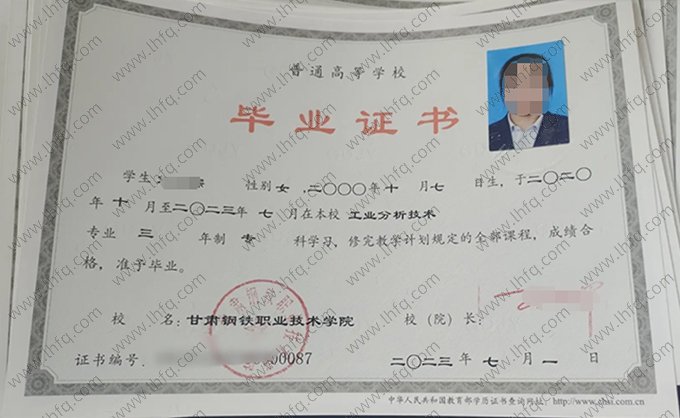 普通高等学校
毕业证书
学生 性别 女 ,二〇〇〇年 十 月 七 日生, 于 二〇二〇
年 十 月至 二〇二三 年 七 月在本校 工业分析技术
专业 三 年制 专 科学习, 修完教学计划规定的全部课程, 成绩合
格, 准予毕业。
校 名: 甘肃钢铁职业技术学院 校(院)长:
证书编号: 00087 二〇二三 年 七 月 一 日
中华人民共和国教育部学历证书查询网址: http://www.chsi.com.cn
www.lhfq.com